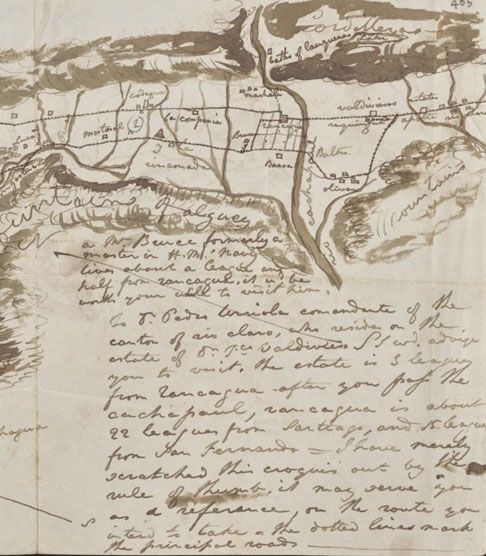 463
Cordilleras
baths of Cauquenes
codegua
machali
la compania
mostazal
rancagua
valdiviesos estates
requinoa
Bruce
rinconada
Baltra
Baesa
olivar
cachapaul
mountains
mountains of alguey
a Mr. Bruce formerly a
master in H.M. Navy
lives about a league and
half from rancagua, it wd. be
worth your while to visit him.
To Dn. Pedro Urriola comandante of the
canton of rio claro, who resides on the
estate of Dn. Valdivieso I wd. advise
you to visit. The estate is 3 leagues
from rancagua after you pass the
cachapaul, rancagua is about
22 leagues from Santiago, and 15 leagues
from San Fernando = I have merely
scratched this croquis out by the
rule of thumb, it may serve you
as a reference, on the route you
intend to take = the dotted lines mark
the principal roads